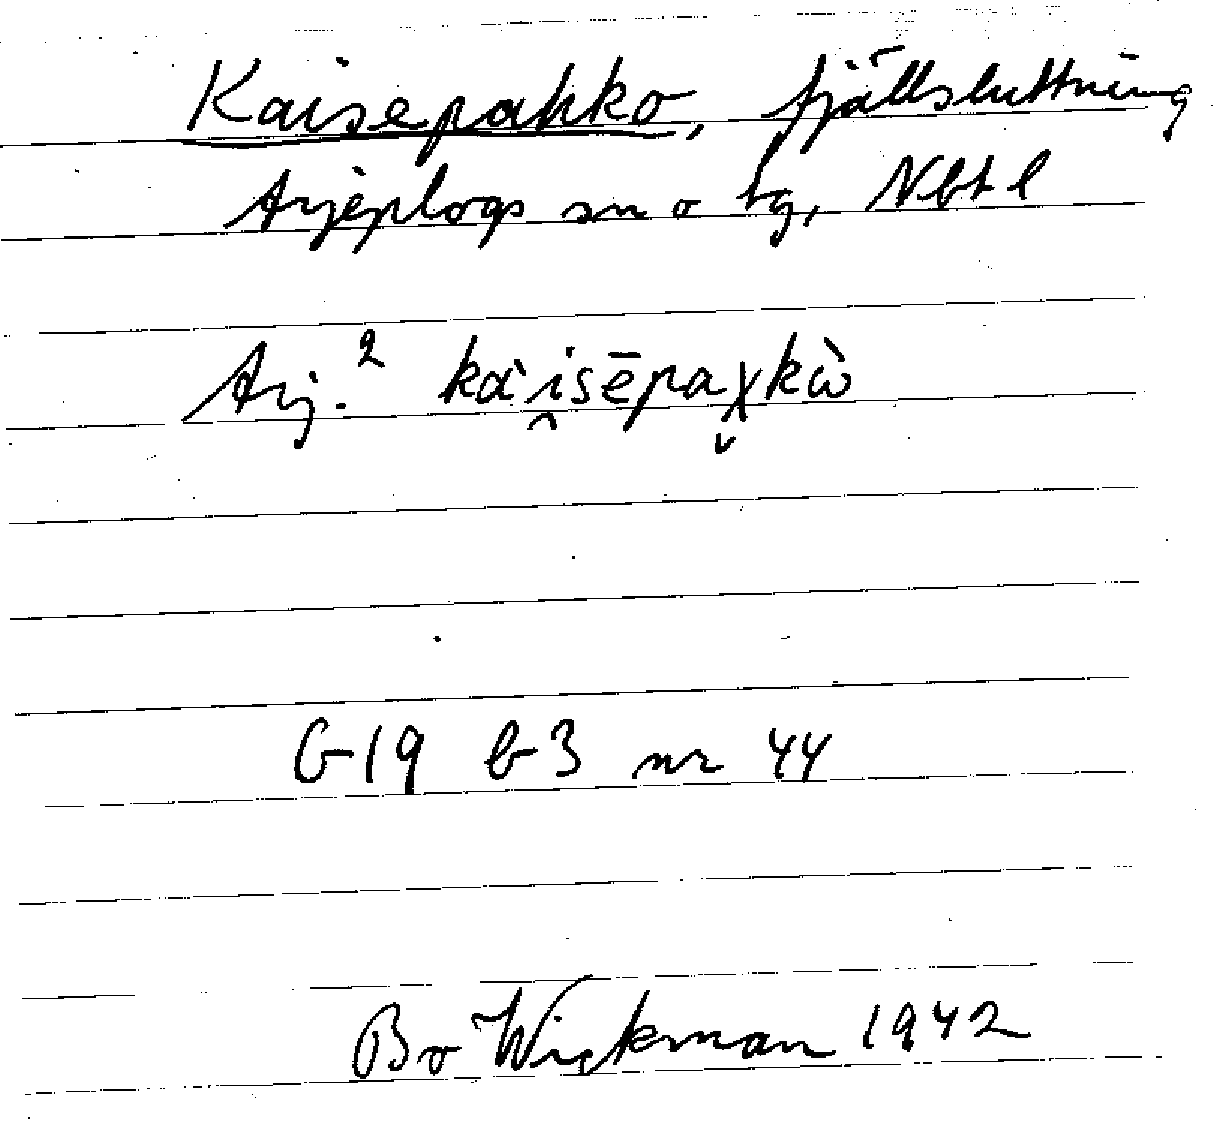 Kaisepahko, fjällsluttning
Arjeplogs sn o tg, Nbt l
Arj.² kὰi̯sēpaχ̬kὼ
G 19 b 3 nr 44
Bo Wickman 1942